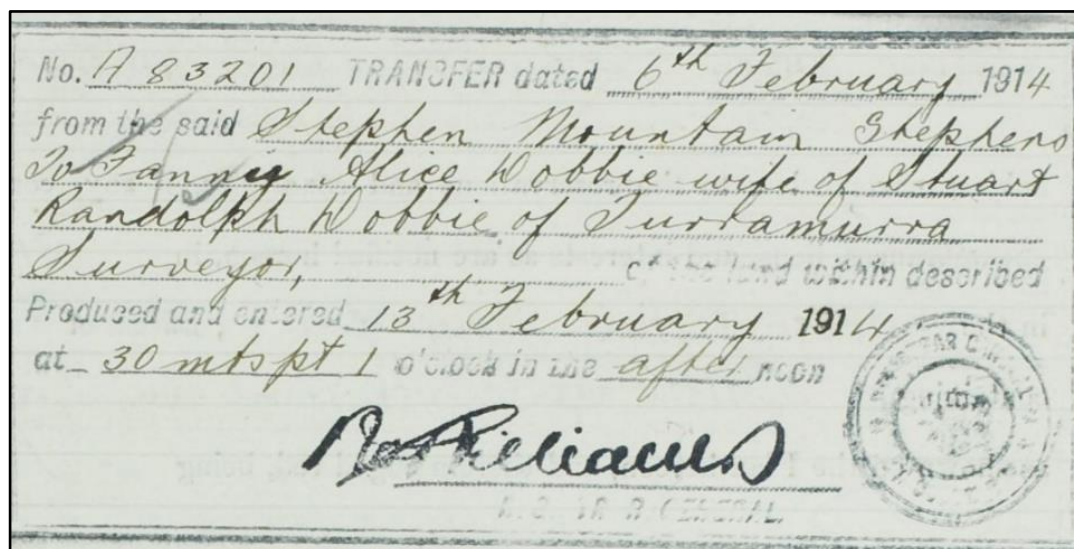 No. A 83201 TRANSFER dated 6th February 1914
from the said Stephen Mountain Stephens
To Fanny Alice Dobbie wife of Stuart
Randolph Dobbie of Turramurra
Surveyor, of the land within described
Produced and entered 13th February 1914
at 30 mts pt 1 o'clock in the after noon
Williams
REGISTRAR GENERAL